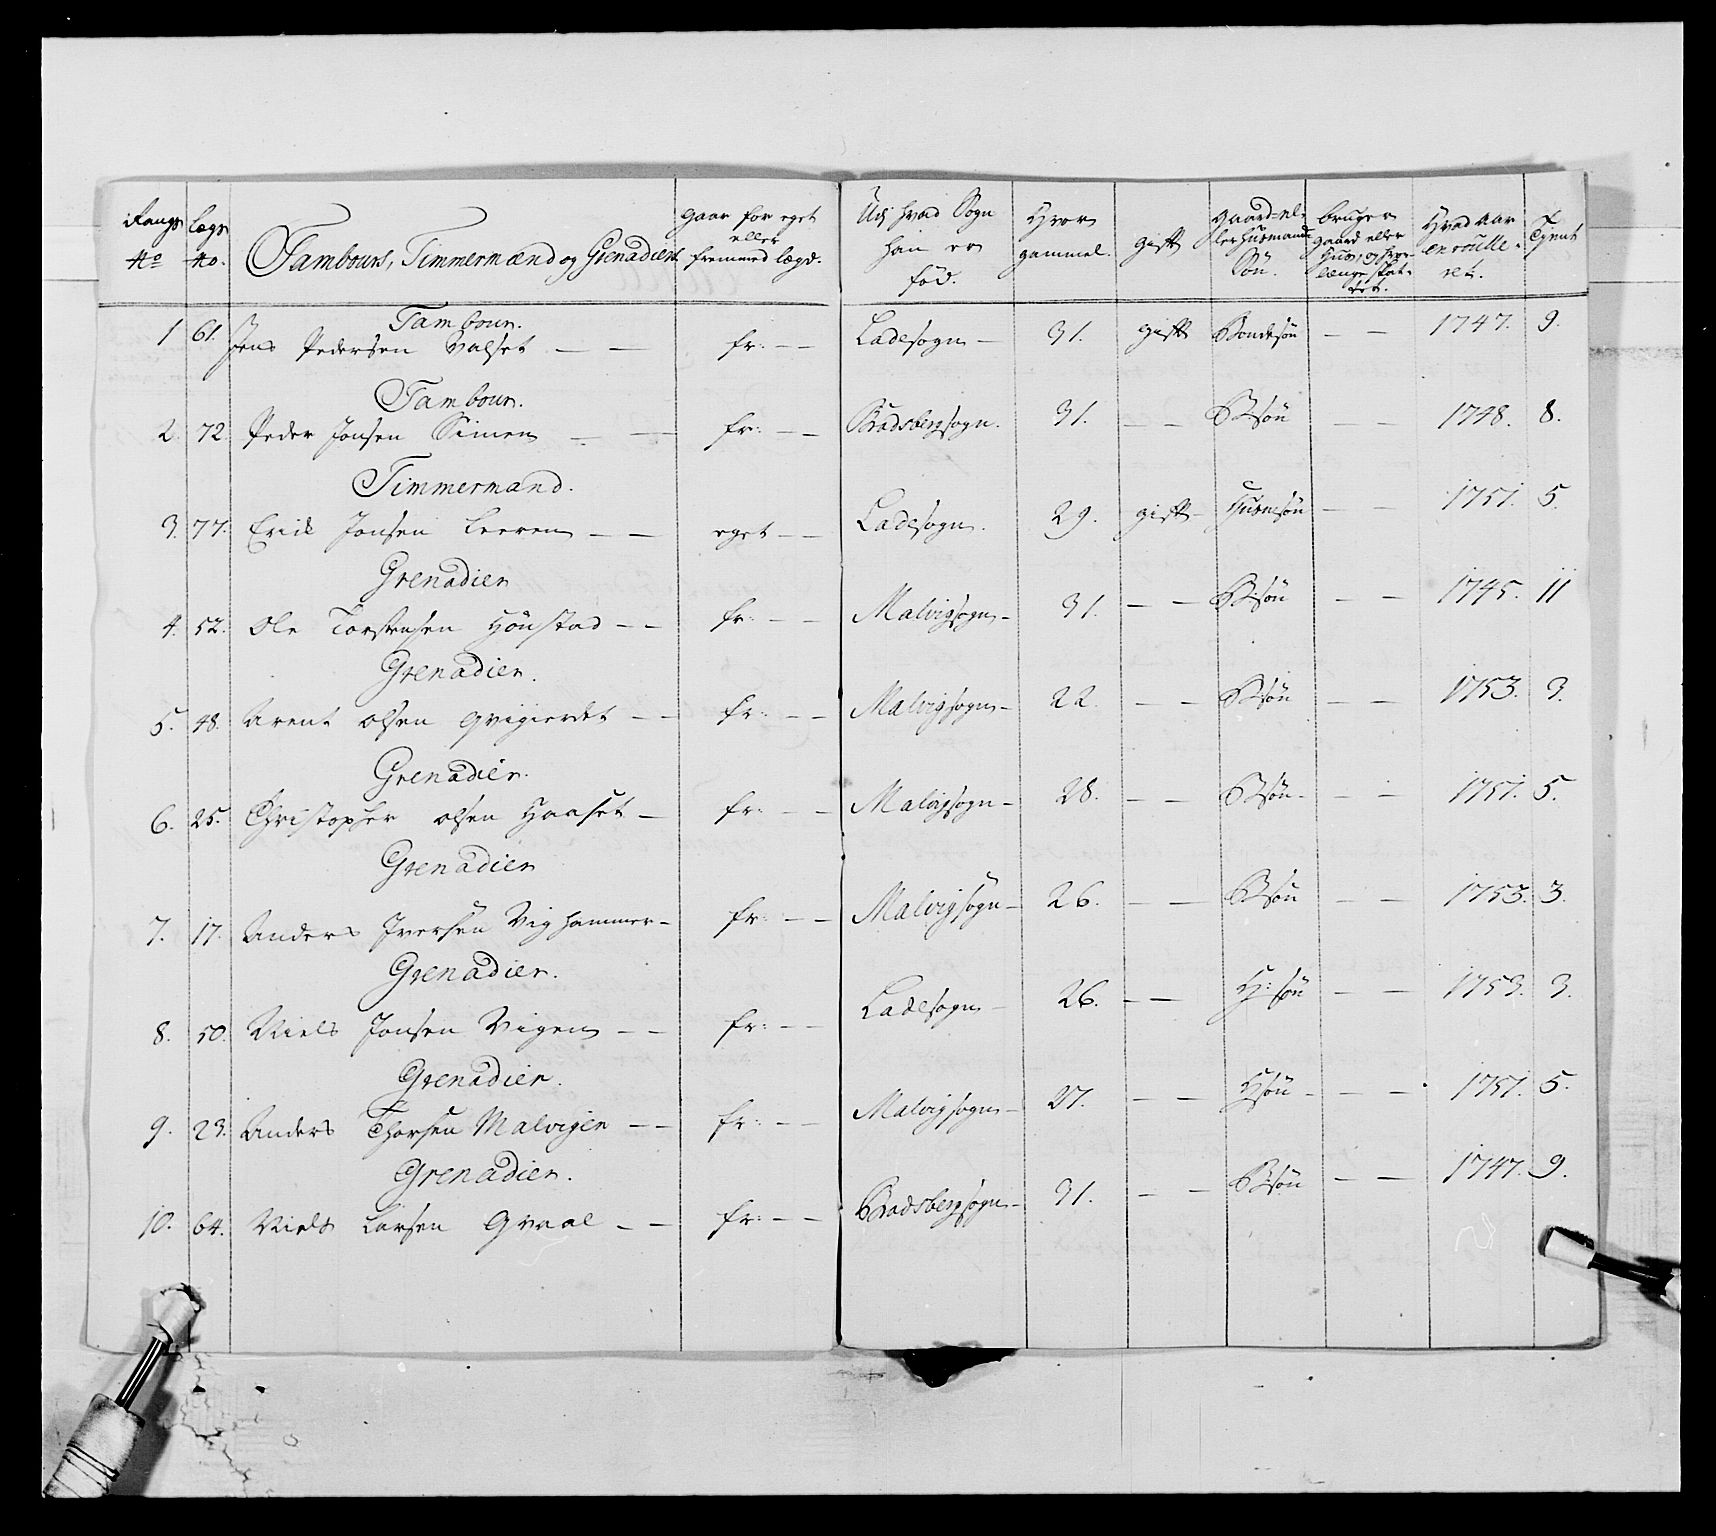 Rangs No | Lægs No. | Tambours, Timmermænd og Grenadiers | gaar for eget eller fremmed lægd. | Udj hvad Sogn han er fød. | Hvor gammel. | gift | gaard- eller Huusmands Søn. | bruger gaard eller Huus, og hvor længe | Hvad Aar enroulleret. | Tient
Tambour.
1 | 61. | Jens Pedersen Valset — — | fr: — — | Ladesogn — | 31. | gift | Bondesøn | — — | 1747. | 9.
Tambour.
2. | 72. | Peder Jonsen Simen — — | fr: — — | Bradsbergsogn. | 31. | — — | B søn | — — | 1748. | 8.
Timmermand.
3. | 77. | Erich Jonsen Leeren — — | eget — — | Ladesogn. | 29. | gift — | Husmsøn | — — | 1751. | 5.
Grenadier
4. | 52. | Ole Torstensen Hønstad — — | fr: — — | Malvigsogn — | 31. | — — | B: søn | — — | 1745. | 11
Grenadier.
5. | 48. | Arent Olsen Qvigierdet — — | fr: — — | Malvigsogn — | 22. | — — | B: søn | — — | 1753. | 3.
Grenadier.
6. | 25. | Christopher Olsen Haaset — | fr: — — | Malvigsogn — | 28. | — — | B søn — | — — | 1751. | 5.
Grenadier
7. | 17. | Anders Iversen Vighammer — | fr: — — | Malvigsogn — | 26. | — — | B søn | — — | 1753. | 3.
Grenadier.
8. | 50. | Niels Jonsen Vigen — — | fr: — — | Ladesogn — | 26. | — — | H: søn | — — | 1753. | 3.
Grenadier.
9. | 23. | Anders Thorsen Malvigen — — | fr: — — | Malvigsogn — | 27. | — — | H søn — | — — | 1751. | 5.
Grenadier.
10. | 64. | Niels Larsen Qvaal — — | fr: — — | Bradsbergsogn — | 31. | — — | B: søn | — — | 1747. | 9.